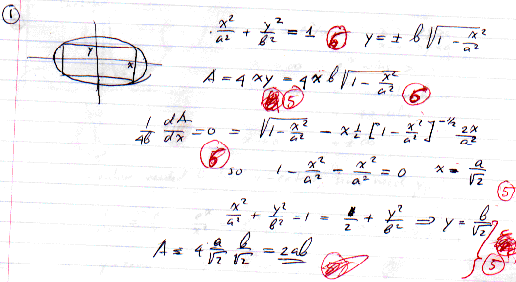 ①
x²/a² + y²/b² = 1 ⑤ y = ± b√(1 - x²/a²)
y
x
A = 4xy = 4xb√(1 - x²/a²)
⑤ ⑤
1/4b dA/dx = 0 = √(1 - x²/a²) - x ½ [1 - x²/a²]^-½ 2x/a²
⑤ so 1 - x²/a² - x²/a² = 0 x = a/√2 ⑤
x²/a² + y²/b² = 1 = 1/2 + y²/b² ⇒ y = b/√2
A = 4 a/√2 b/√2 = 2ab ⑤